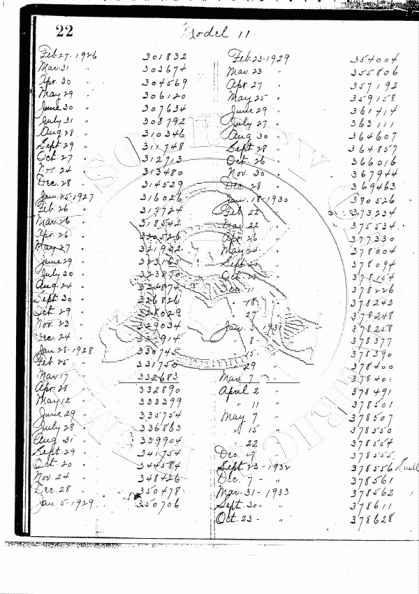 22
Model 11
Feb. 27 - 1926 301832
Mar. 31 " 303674
Apr. 30 " 304569
May 29 " 306120
June 30 " 307634
July 31 " 308792
Aug 28 " 310346
Sept. 29 " 311748
Oct. 27 " 312713
Nov. 24 " 313480
Dec. 28 " 314539
Jan. 25 - 1927 316026
Feb. 26 " 317724
Mar. 26 " 318542
Apr. 26 "
May 27 "
June 29 "
July 30 " 323870
Aug 24 " 324874
Sept. 30 " 326826
Oct. 29 " 328029
Nov. 23 " 329034
Dec. 24 "
Jan. 28 - 1928 330745
Feb. 25 " 331750
Mar. 17 " 332683
Apr. 28 " 332890
May 12 " 333399
June 29 " 335754
July 28 " 336863
Aug 31 " 339904
Sept. 29 " 341754
Oct. 20 " 344584
Nov. 24 " 348426
Dec. 28 " 350478
Jan. 5 - 1929 350706
Feb. 23 - 1929 354004
Mar. 23 " 355806
Apr. 27 " 357192
May 25 " 359158
June 29 " 361414
July 27 " 363111
Aug 30 " 364607
Sept. 28 " 364857
Oct. 26 " 366016
Nov. 30 " 367944
Dec. 28 " 369463
Jan. 18 - 1930 370526
Feb. 22 " 373234
Mar. 22 " 375534
Apr. 26 " 377330
May 24 " 378004
Sept. 27 " 378094
Oct. 378154
Dec. 11 378226
" 18 378242
" 27 378248
Jan. - 1931 378258
" 8 378377
" 15 378390
" 29 378400
Mar. 7 " 378401
April 2 " 378491
" 11 " 378501
May 7 " 378507
" 15 " 378550
" 22 378554
Dec. 19 378555
Sept. 23 - 1932 378556
Dec. 7 - " 378561
Mar. 31 - 1933 378562
Sept. 30 - " 378611
Oct. 23 - " 378628